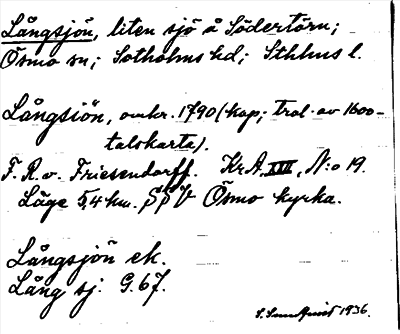 Långsjön, liten sjö å Södertörn;
Ösmo sn; Sotholms hd; Sthlms l.
Långsiön, omkr. 1790 (kop; trol. av 1600-
talskarta).
F. R. v. Friesendorff. Kr.A. XIII, N:o 19.
Läge 5,4 km. SSV Ösmo kyrka.
Långsjön ek.
Lång sj. G. 67.
S. Sundqvist 1936.